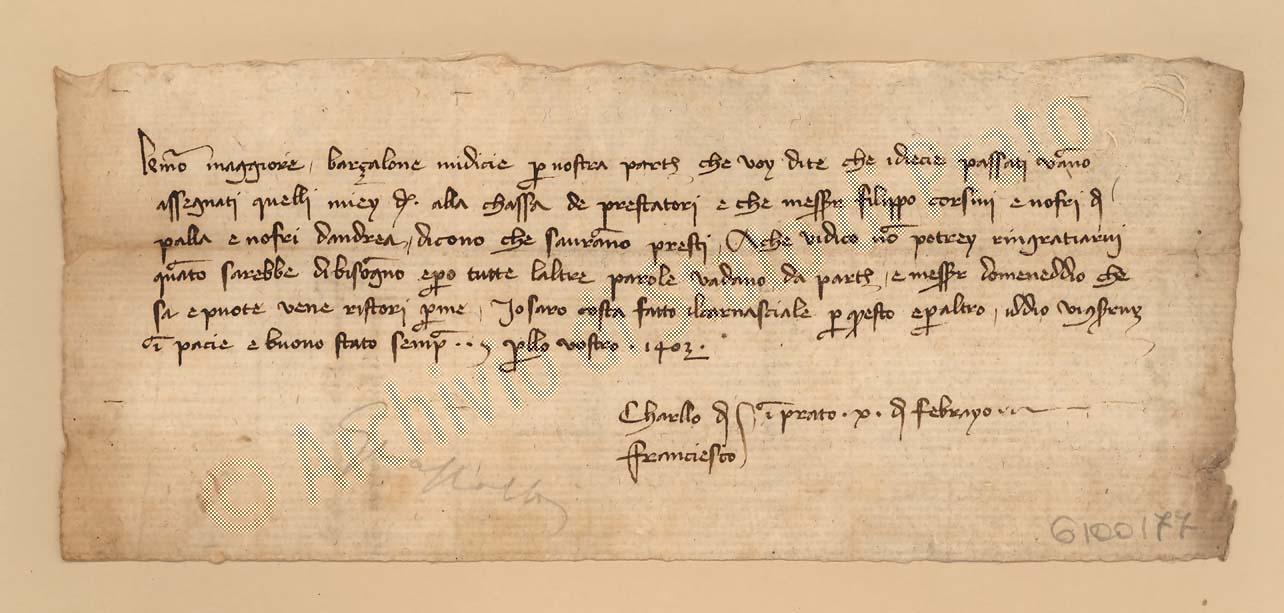 maggiore, barzalone midicie p vostra parte che voy dite che idiecie passati
assegnati quelli miey d. alla chassa de prestatori e che messer filippo corsini e nofri d
palla e nofri dandrea, dicono che saurano presti, Ache vidico nō potrey ringratiarvi
quāto sarebbe dibisogno epo tutte laltre parole vadano da parte, e messer domeneddio che
sa e puote vene ristori p me, Io saro costa fatto ilcarnasciale p questo e p altro, iddio
ī pacie e buono stato semp p llo vostro . 1402.
Charllo d ī prato . x . d febrayo
Franciesco
© Archivio di Stato di Prato
6100177